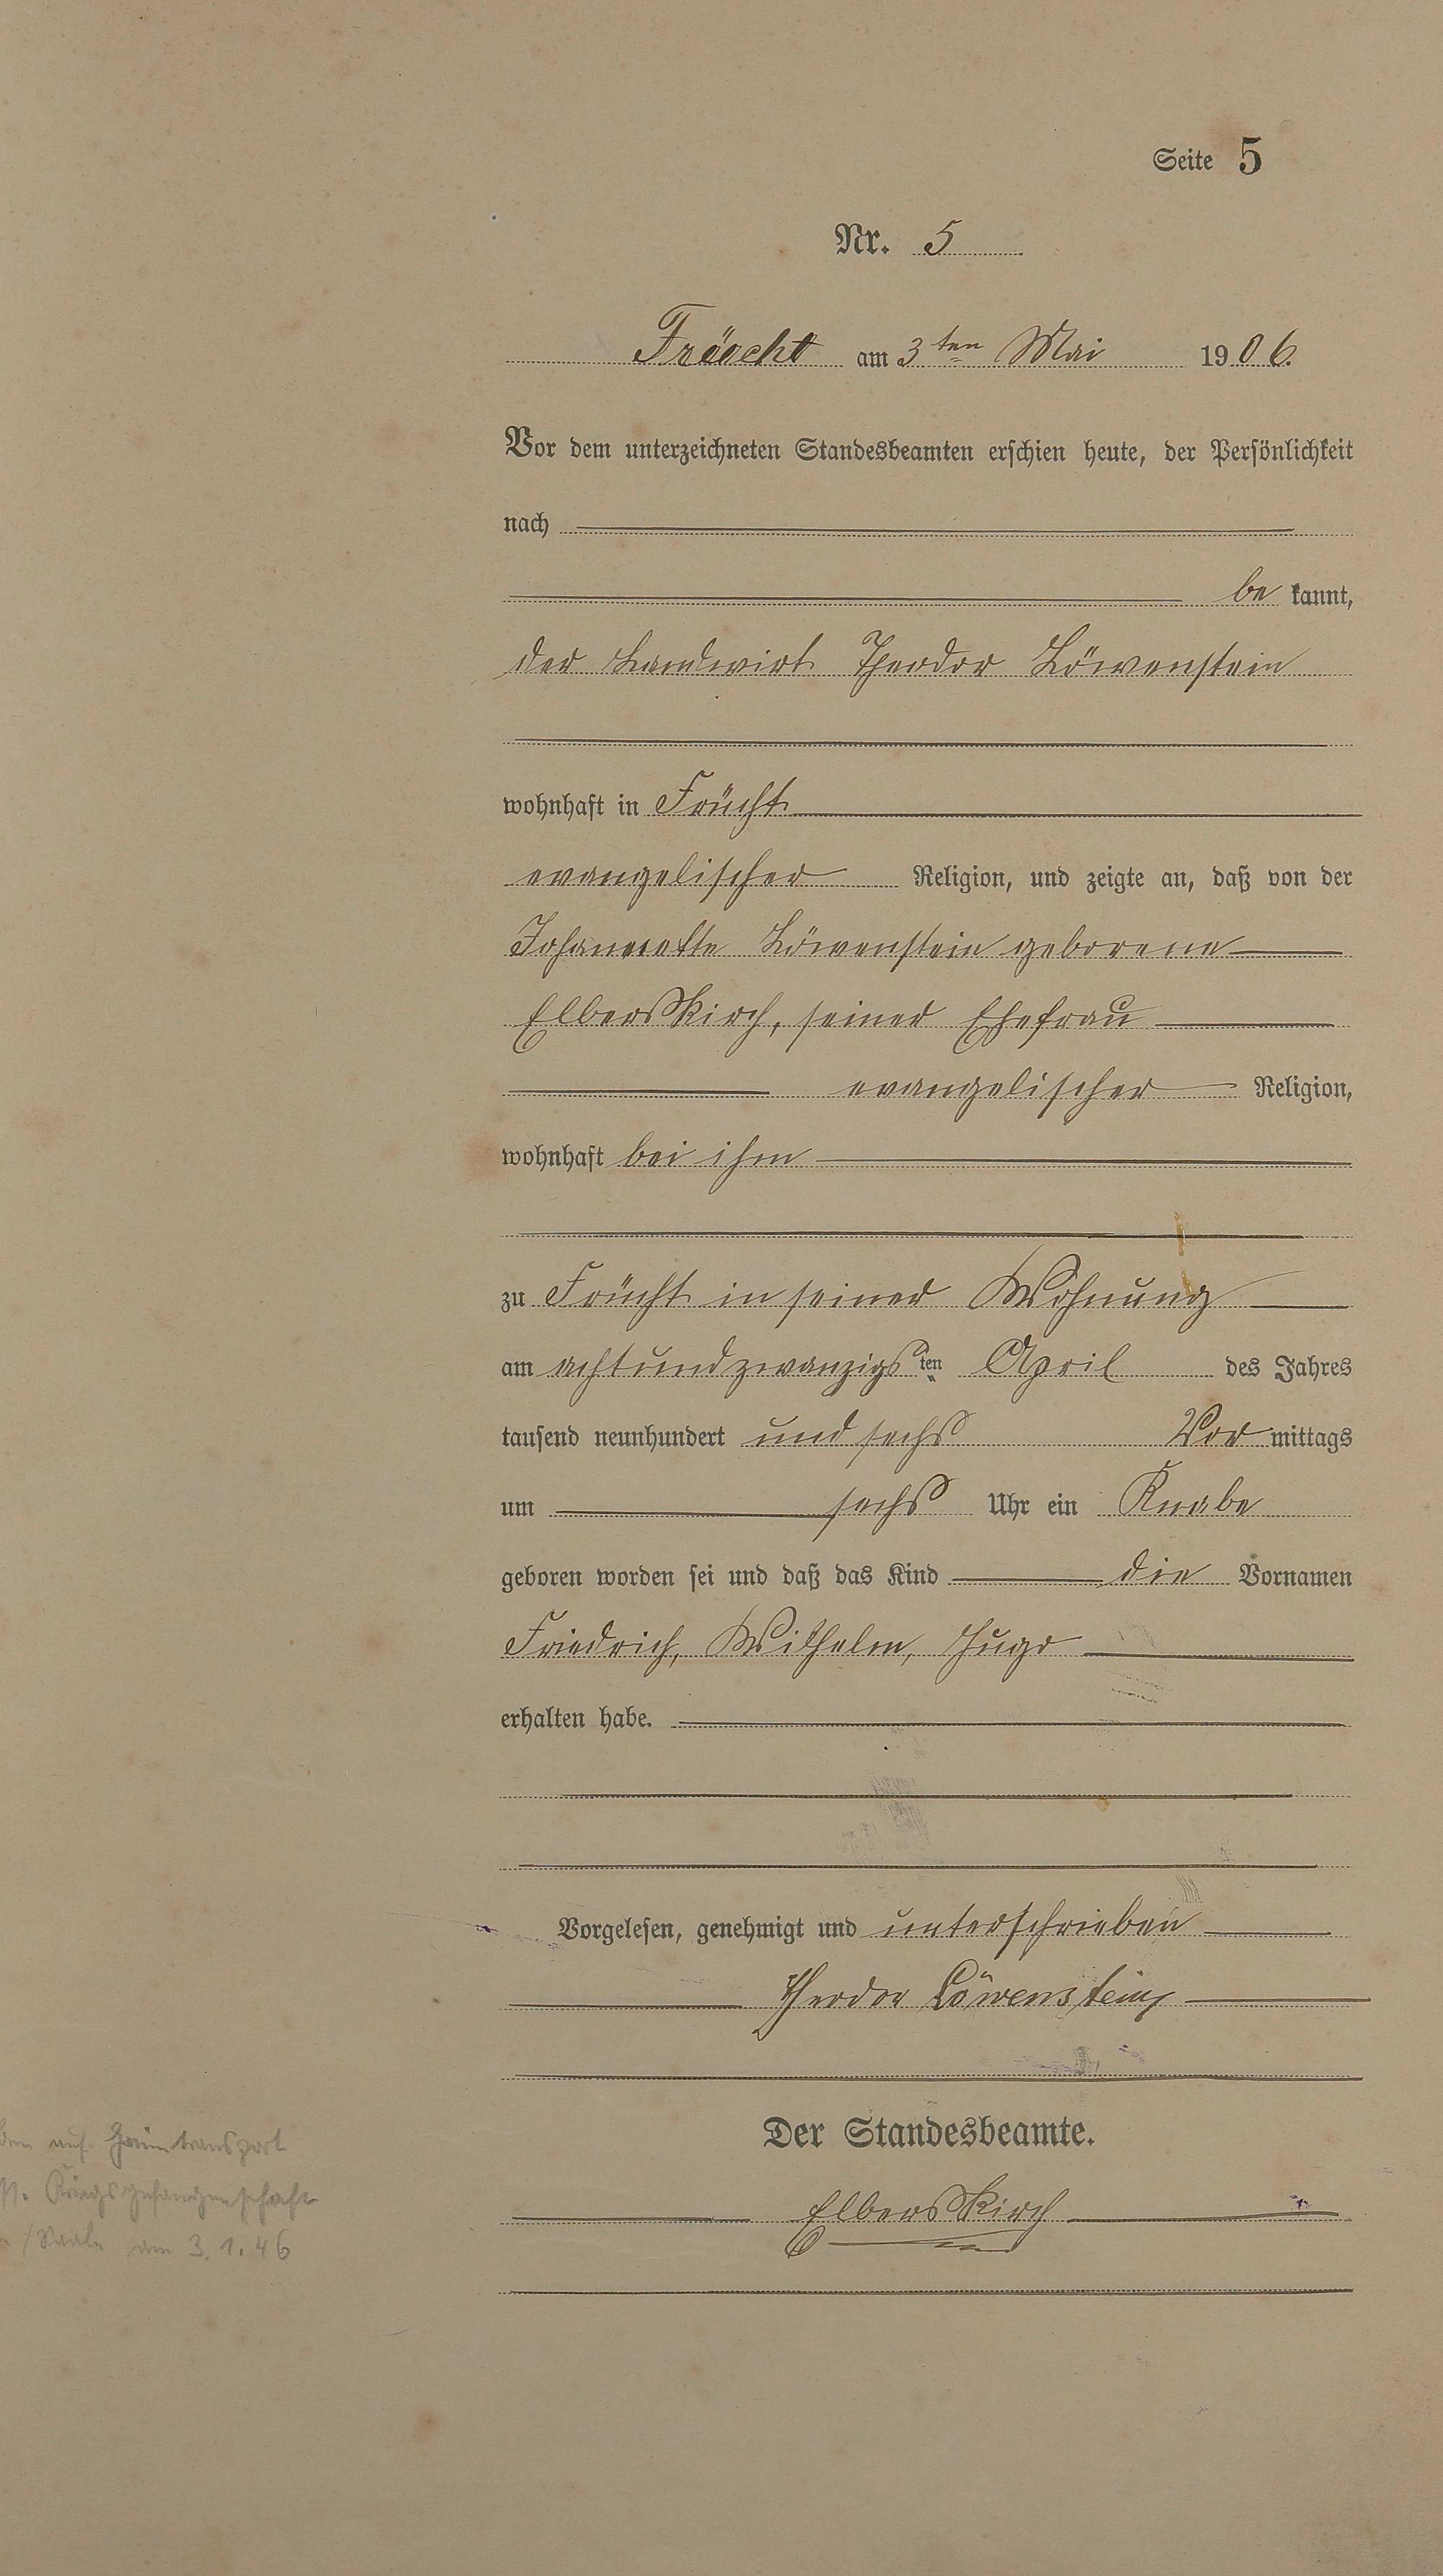 Seite 5
Nr. 5
Frücht am 3ten Mai 1906.
Vor dem unterzeichneten Standesbeamten erschien heute, der Persönlichkeit
nach
be kannt,
der Landwirt Theodor Löwenstein
wohnhaft in Frücht
evangelischer Religion, und zeigte an, daß von der
Johannette Löwenstein geborene
Elberskirch, seiner Ehefrau
evangelischer Religion,
wohnhaft bei ihm
zu Frücht in seiner Wohnung
am achtundzwanzigsten April des Jahres
tausend neunhundert und sechs Vor mittags
um sechs Uhr ein Knabe
geboren worden sei und daß das Kind die Vornamen
Friedrich, Wilhelm, Hugo
erhalten habe.
Vorgelesen, genehmigt und unterschrieben
Theodor Löwenstein
Der Standesbeamte.
Elberskirch
auf Heimtransport
Kriegsgefangenschaft
/Saale am 3.1.46